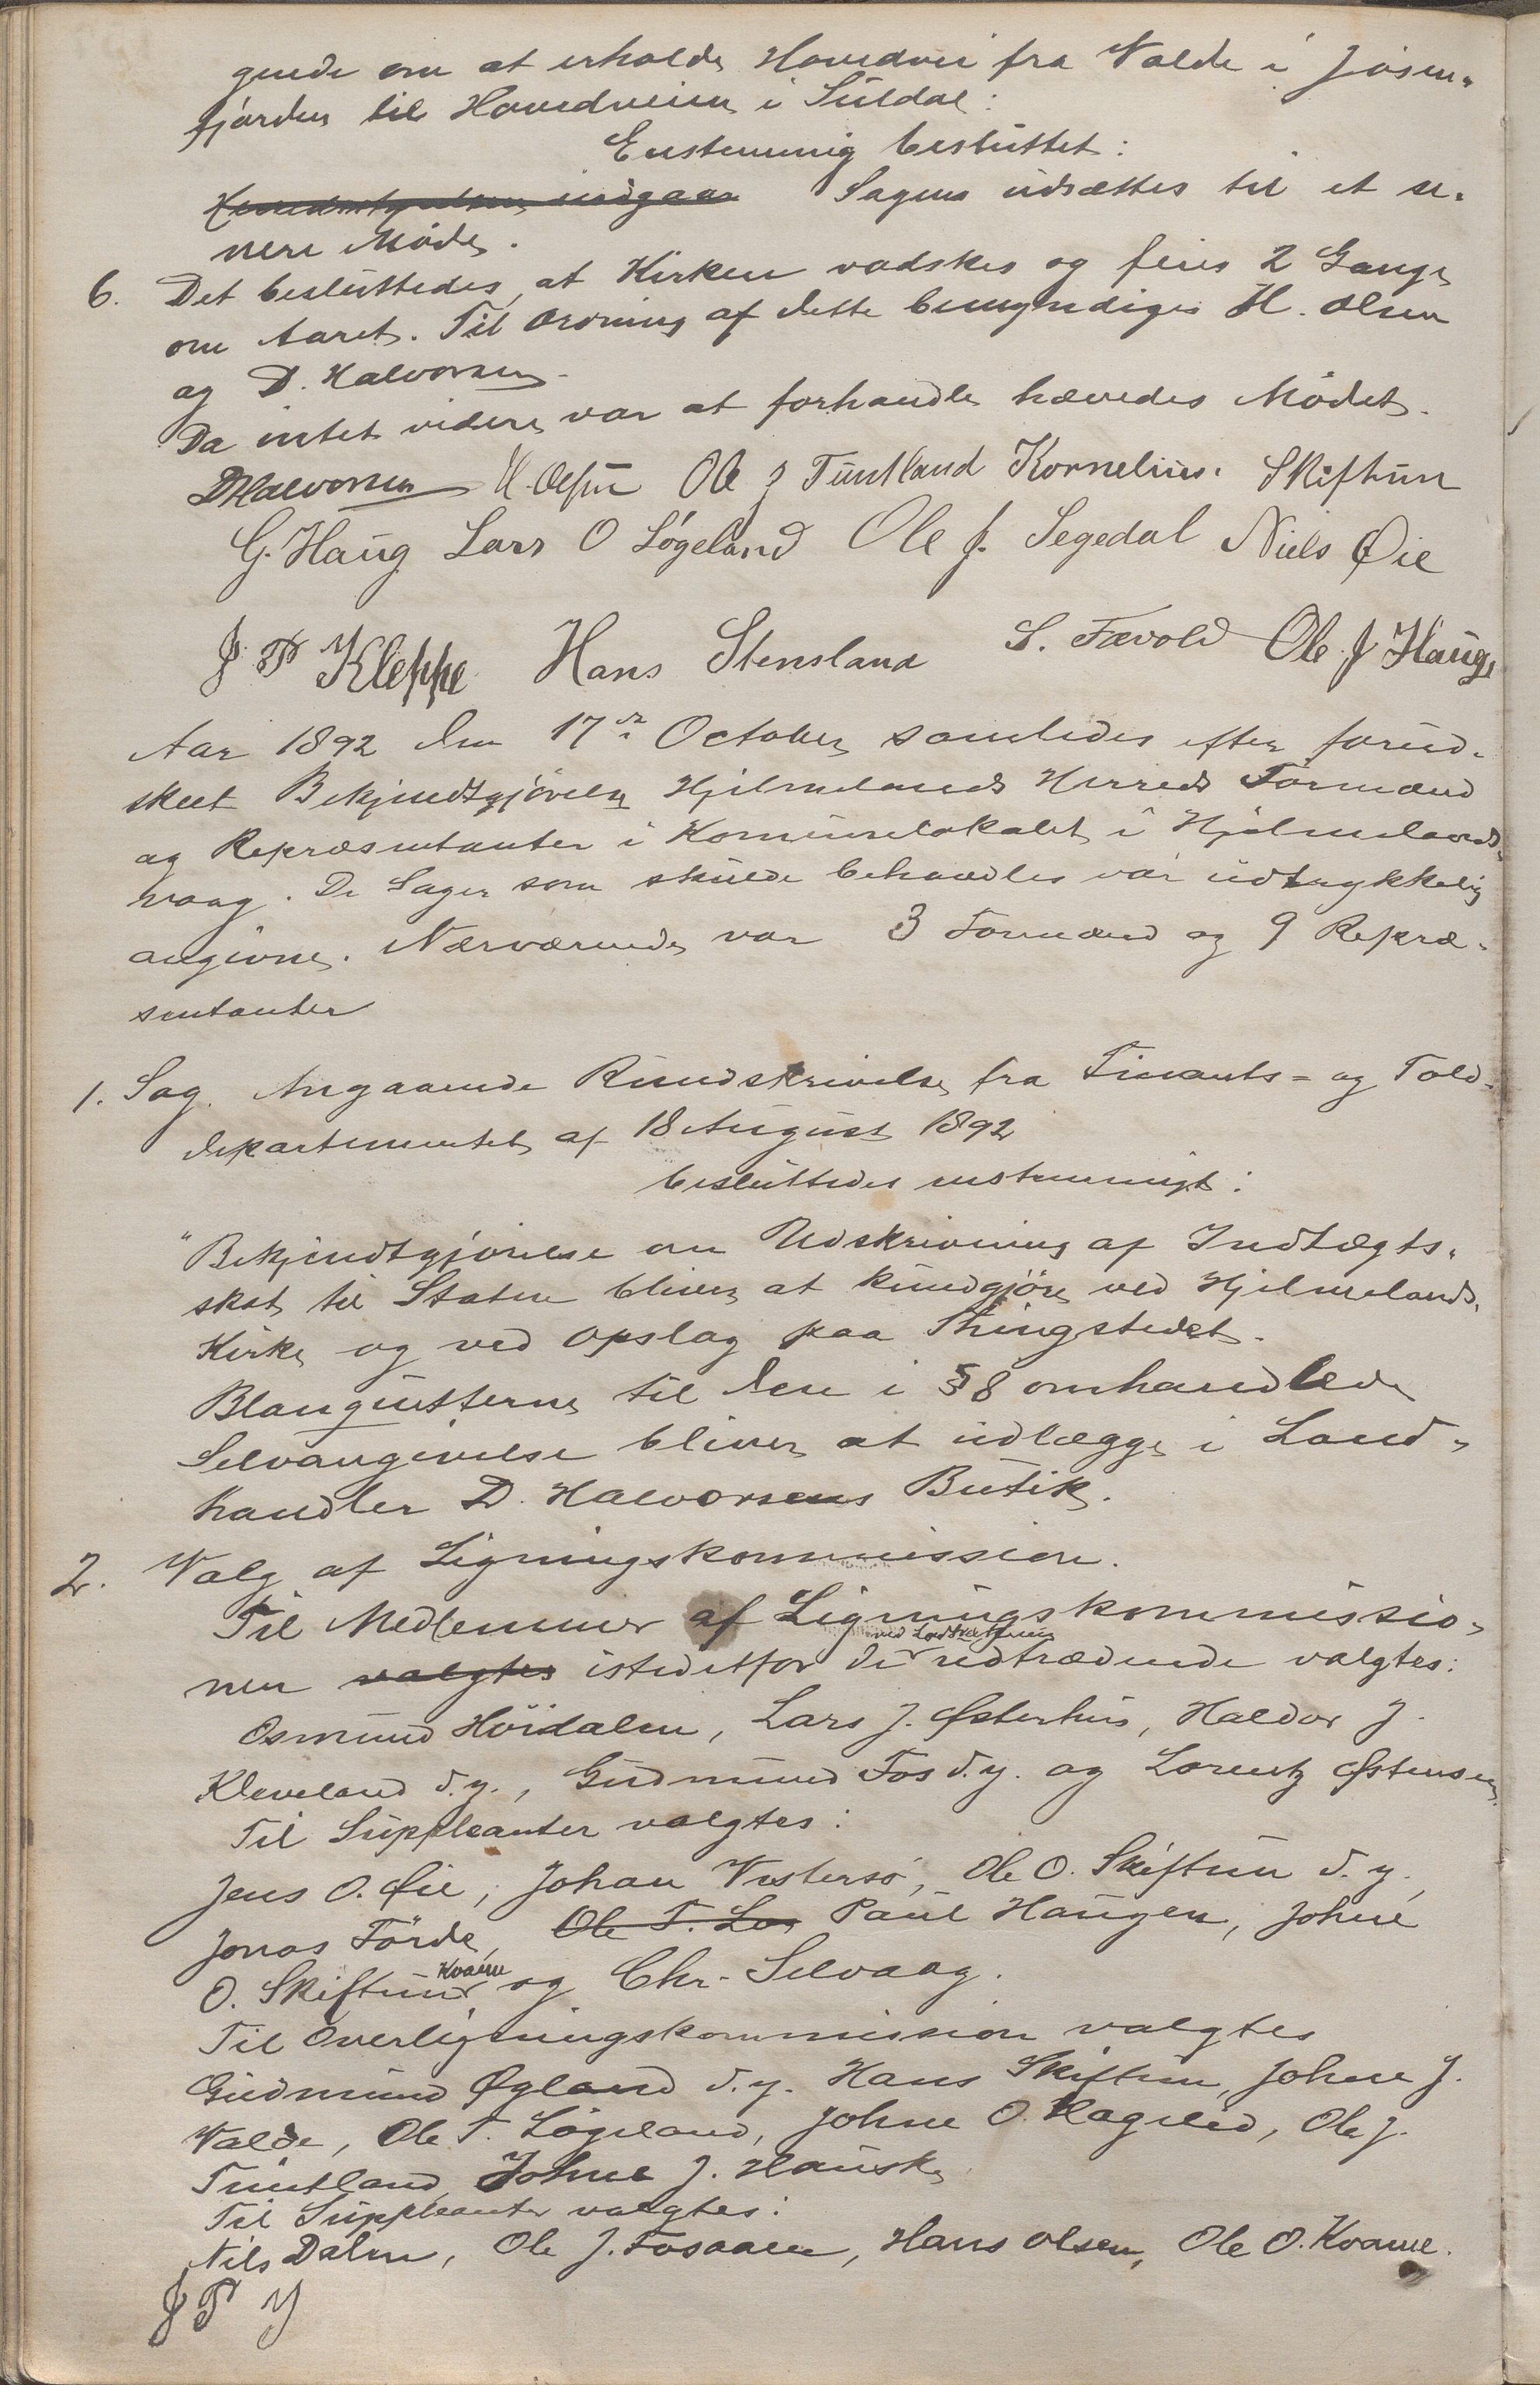 gende om at erholde Hovedvei fra Valde i Jøsen-
fjorden til Hovedveien i Suldal:
Enstemmig besluttet:
Sagen udsættes til et se-
nere Møde.
6. Det besluttedes, at Kirken vadskes og feies 2 Gange
om Aaret. Til Ordning af dette bemyndiges H. Olsen
og D. Halvorsen.
Da intet videre var at forhandle hævedes Mødet.
D Halvorsen H. Olsen Ole J Tuntland Kornelius Skiftun
G. Haug Lars O Løgeland Ole J. Segedal Niels Øie
J P Kleppe Hans Stensland S. Fævold Ole J Hauge
Aar 1892 den 17de October samledes efter forud-
skeet Bekjendtgjørelse Hjelmelands Herreds Formænd
og Repræsentanter i Kommunelokalet i Hjelmelands-
vaag. De Sager som skulde behandles var udtrykkelig
angivne. Nærværende var 3 Formænd og 9 Repræ-
sentanter
1. Sag. Angaaende Rundskrivelse fra Finants- og Told-
departementet af 18 August 1892
besluttedes enstemmigt:
"Bekjendtgjørelse om Udskrivning af Indtægts-
skat til Staten bliver at kundgjøre ved Hjelmelands
Kirke og ved Opslag paa Thingstedet.
Blanquetterne til den i § 8 omhandlede
Selvangivelse bliver at udlægge i Land-
handler D. Halvorsens Butik.
2. Valg af Ligningskommission.
Til Medlemmer af Ligningskommissio-
ned Lodtrækning
nen valgtes istedetfor de udtrædende valgtes:
Osmund Höidalen, Lars J. Østerhus, Haldor J.
Kleveland d.y., Gudmund Fos d.y. og Lorentz Østensen.
Til Suppleanter valgtes:
Jens O. Øie, Johan Vestersø, Ole O. Skiftun d.y.,
Jonas Førde, Ole T. Paul Haugen, Johne
Kvame
O. Skiftun og Chr. Selvaag.
Til Overligningskommission valgtes
Gudmund Øgland d.y. Hans Skiftun, Johne J.
Valde, Ole T. Løgeland, Johne O. Hagalid, Ole J.
Tuntland, Johne J. Hauske
Til Suppleanter valgtes:
Nils Dalen, Ole J. Fosaaen, Hans Olsen, Ole O. Kvame.
J P